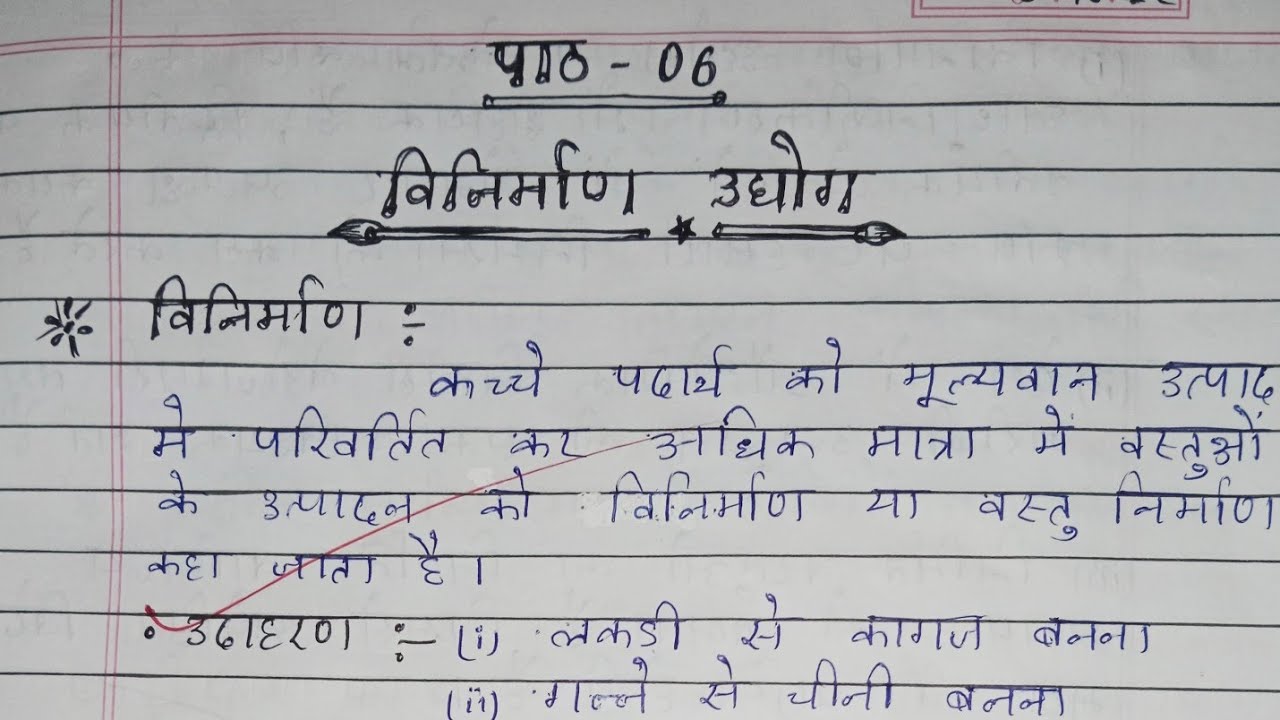 पाठ - 06
विनिर्माण उद्योग
विनिर्माण :-
कच्चे पदार्थ को मूल्यवान उत्पाद
मे परिवर्तित कर अधिक मात्रा में वस्तुओं
के उत्पादन को विनिर्माण या वस्तु निर्माण
कहा जाता है।
• उदाहरण :- (i) लकड़ी से कागज बनना
(ii) गन्ने से चीनी बनना